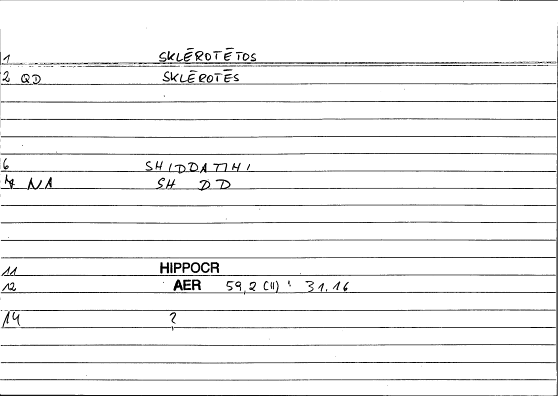 1 SKLĒROTĒTOS
2 QD SKLĒROTĒS
6 SHIDDATIHI
NA SH DD
11 HIPPOCR
12 AER 59,2 (11) : 31.16
14 ?